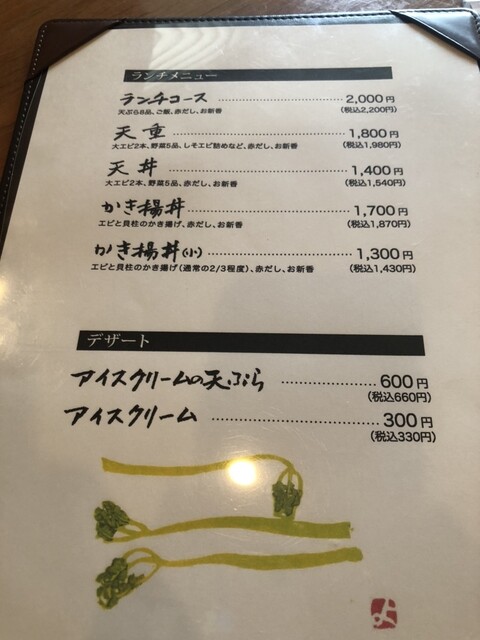 ランチメニュー
ランチコース 2,000円
天ぷら8品、ご飯、赤だし、お新香 (税込2,200円)
天重 1,800円
大エビ2本、野菜5品、しそエビ詰めなど、赤だし、お新香 (税込1,980円)
天丼 1,400円
大エビ2本、野菜5品、赤だし、お新香 (税込1,540円)
かき揚丼 1,700円
エビと貝柱のかき揚げ、赤だし、お新香 (税込1,870円)
かき揚丼(小) 1,300円
エビと貝柱のかき揚げ(通常の2/3程度)、赤だし、お新香 (税込1,430円)
デザート
アイスクリームの天ぷら 600円
(税込660円)
アイスクリーム 300円
(税込330円)
よ